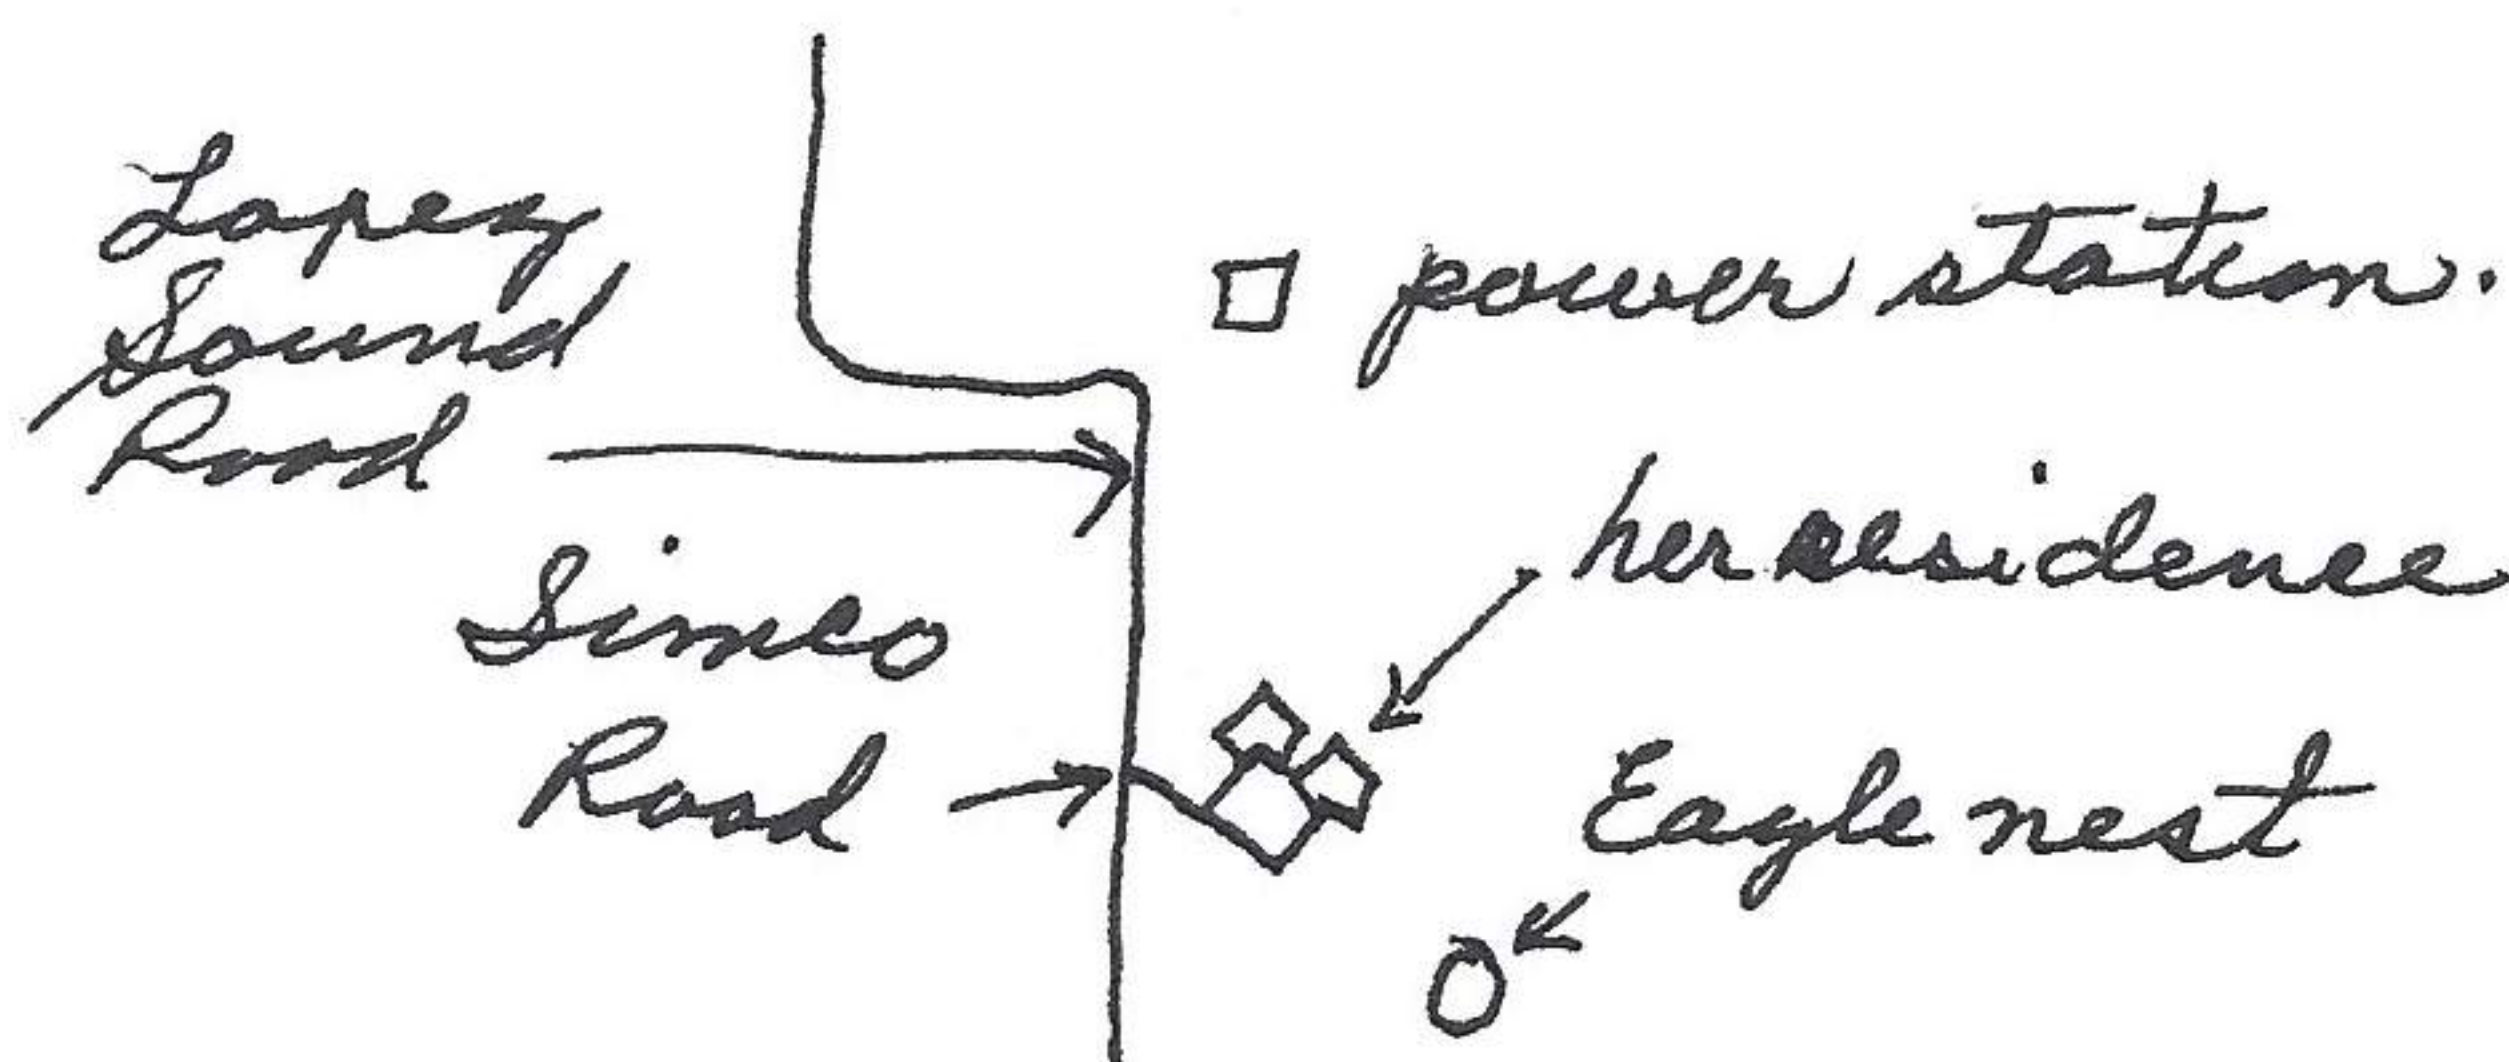 Lopez
Sound
Road
power station.
her residence
Simco
Road
Eagle nest